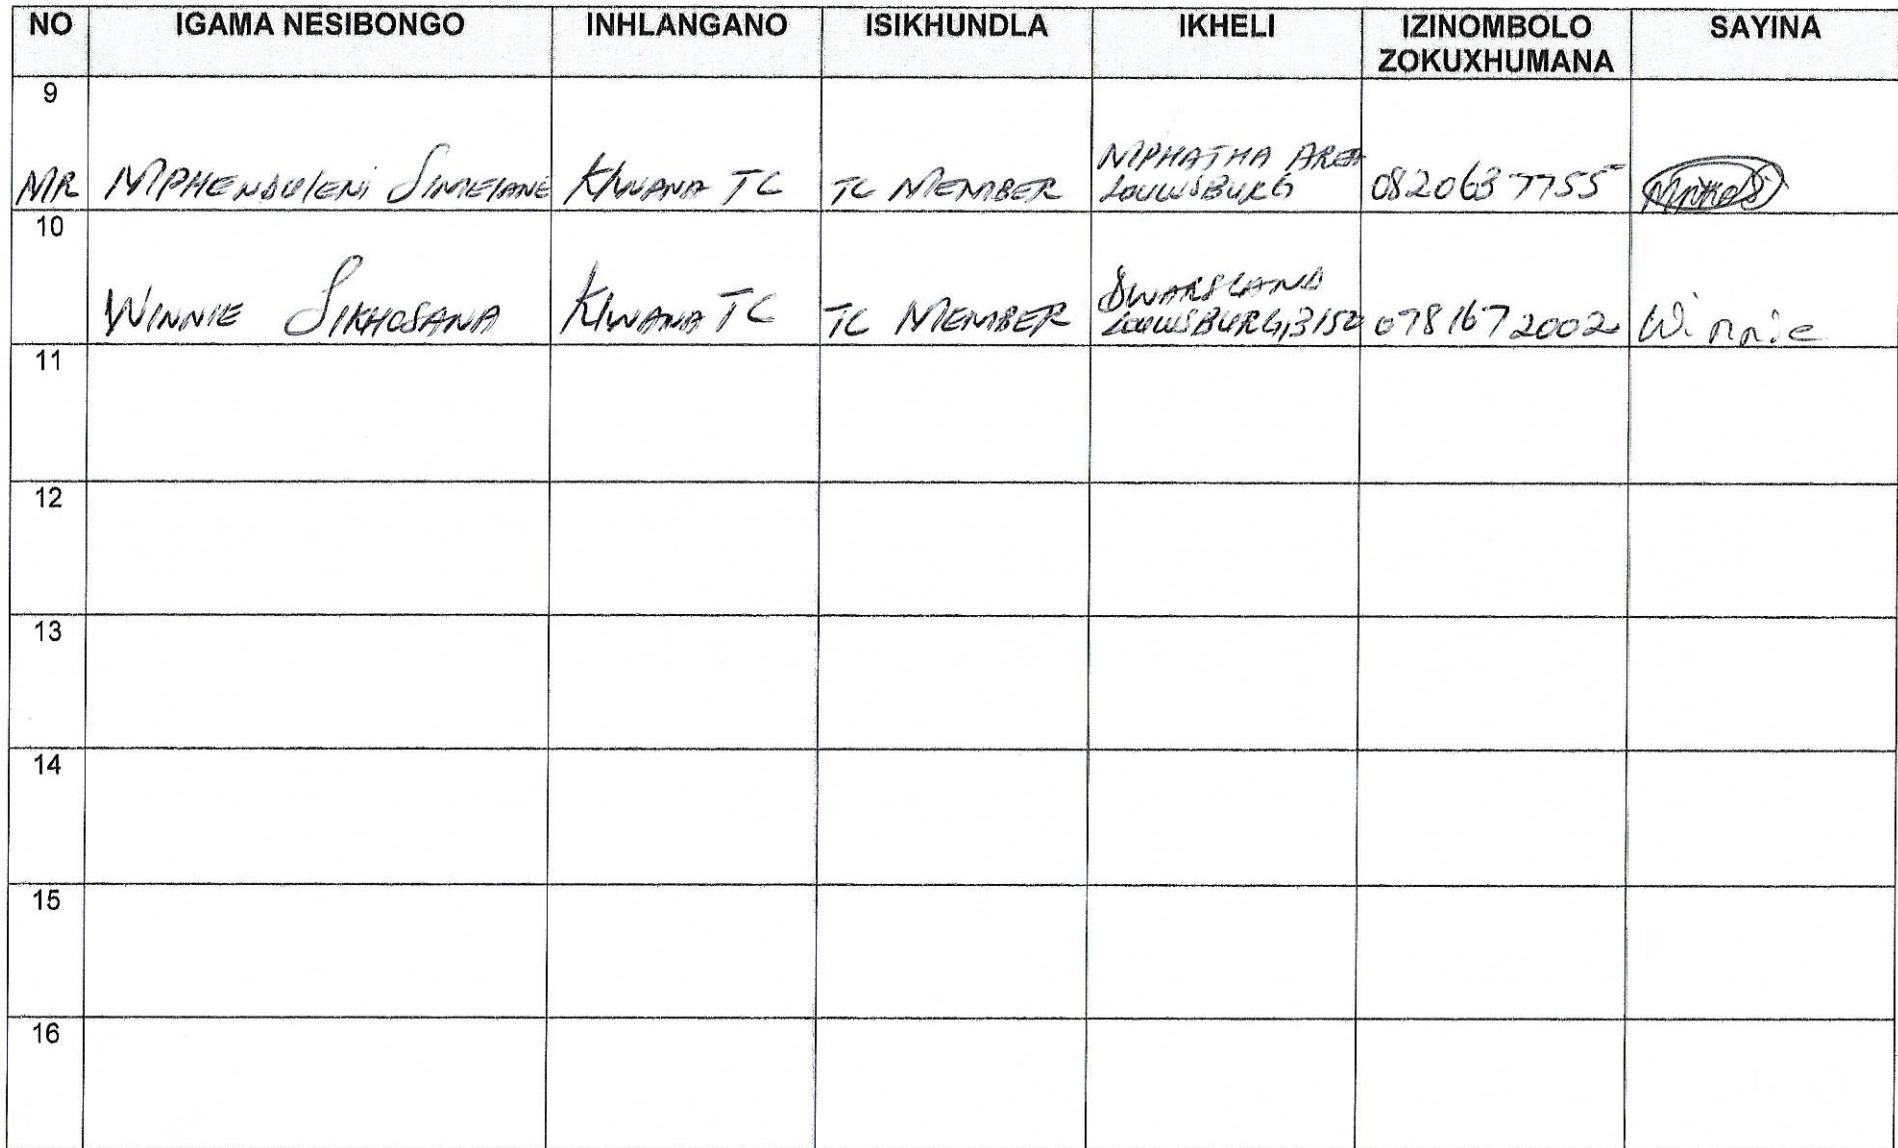 NO IGAMA NESIBONGO INHLANGANO ISIKHUNDLA IKHELI IZINOMBOLO ZOKUXHUMANA SAYINA
9
MR MPHENDULENI SIMELANE KHWANA TC TC MEMBER MPHATHA AREA LOUWSBURG 0820637755
10
WINNIE SIKHOSANA KHWANA TC TC MEMBER DWARSLAND LOUWSBURG, 3152 0781672002 Winnie
11
12
13
14
15
16